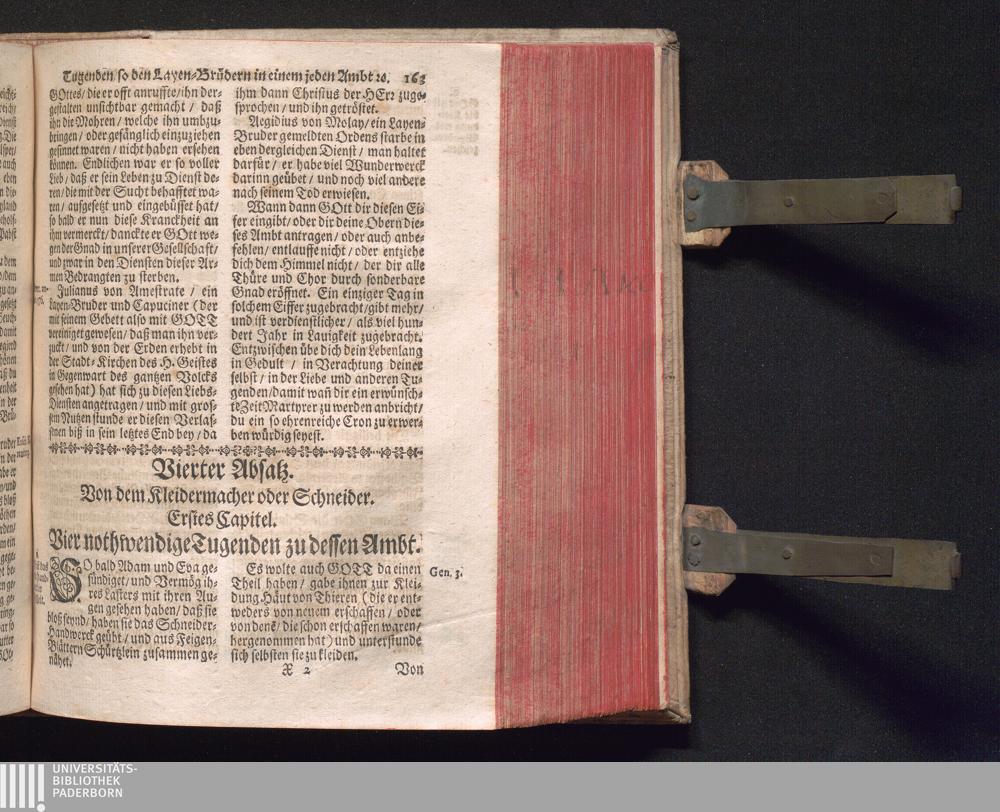 Tugenden so den Layen-Brüdern in einem jeden Ambt ꝛc. 163
GOttes / die er offt anruffte / ihn der-
gestalten unsichtbar gemacht / daß
ihn die Mohren / welche ihn umbzu-
bringen / oder gefänglich einzuziehen
gesinnet waren / nicht haben ersehen
können. Endlichen war er so voller
Lieb / daß er sein Leben zu Dienst de-
ren / die mit der Sucht behafftet wa-
ren / aufgesetzt und eingebüsset hat /
so bald er nun diese Kranckheit an
ihm vermerckt / danckte er GOtt we-
gen der Gnad in unserer Gesellschaft /
und zwar in den Diensten dieser Ar-
men Bedrangten zu sterben.
Julianus von Amestrate / ein
Layen-Bruder und Capuciner (der
mit seinem Gebett also mit GOTT
vereiniget gewesen / daß man ihn ver-
zuckt / und von der Erden erhebt in
der Stadt-Kirchen des H. Geistes
in Gegenwart des gantzen Volcks
gesehen hat) hat sich zu diesen Liebs-
Diensten angetragen / und mit gros-
sem Nutzen stunde er diesen Verlas-
senen biß in sein letztes End bey / da
ihm dann Christus der HErr zuge-
sprochen / und ihn getröstet.
Aegidius von Molay / ein Layen-
Bruder gemeldten Ordens starbe in
eben dergleichen Dienst / man haltet
darfür / er habe viel Wunderwerck
darinn geübet / und noch viel andere
nach seinem Tod erwiesen.
Wann dann GOtt dir diesen Ei-
fer eingibt / oder dir deine Obern die-
ses Ambt antragen / oder auch anbe-
fehlen / entlauffe nicht / oder entziehe
dich dem Himmel nicht / der dir alle
Thüre und Chor durch sonderbare
Gnad eröffnet. Ein einziger Tag in
solchem Eiffer zugebracht / gibt mehr /
und ist verdienstlicher / als viel hun-
dert Jahr in Lauigkeit zugebracht.
Entzwischen übe dich dein Lebenlang
in Gedult / in Verachtung deiner
selbst / in der Liebe und anderen Tu-
genden / damit wañ dir ein erwünsch-
te Zeit Martyrer zu werden anbricht /
du ein so ehrenreiche Cron zu erwer-
ben würdig seyest.
Vierter Absatz.
Von dem Kleidermacher oder Schneider.
Erstes Capitel.
Vier nothwendige Tugenden zu dessen Ambt.
SO bald Adam und Eva ge-
sündiget / und Vermög ih-
res Lasters mit ihren Au-
gen gesehen haben / daß sie
bloß seynd / haben sie das Schneider-
Handwerck geübt / und aus Feigen-
Blättern Schürtzlein zusammen ge-
nähet.
Es wolte auch GOTT da einen
Theil haben / gabe ihnen zur Klei-
dung Häut von Thieren (die er ent-
weders von neuem erschaffen / oder
von denē / die schon erschaffen waren /
hergenommen hat) und unterstunde
sich selbsten sie zu kleiden.
Gen. 3.
X 2 Von
UNIVERSITÄTS-
BIBLIOTHEK
PADERBORN